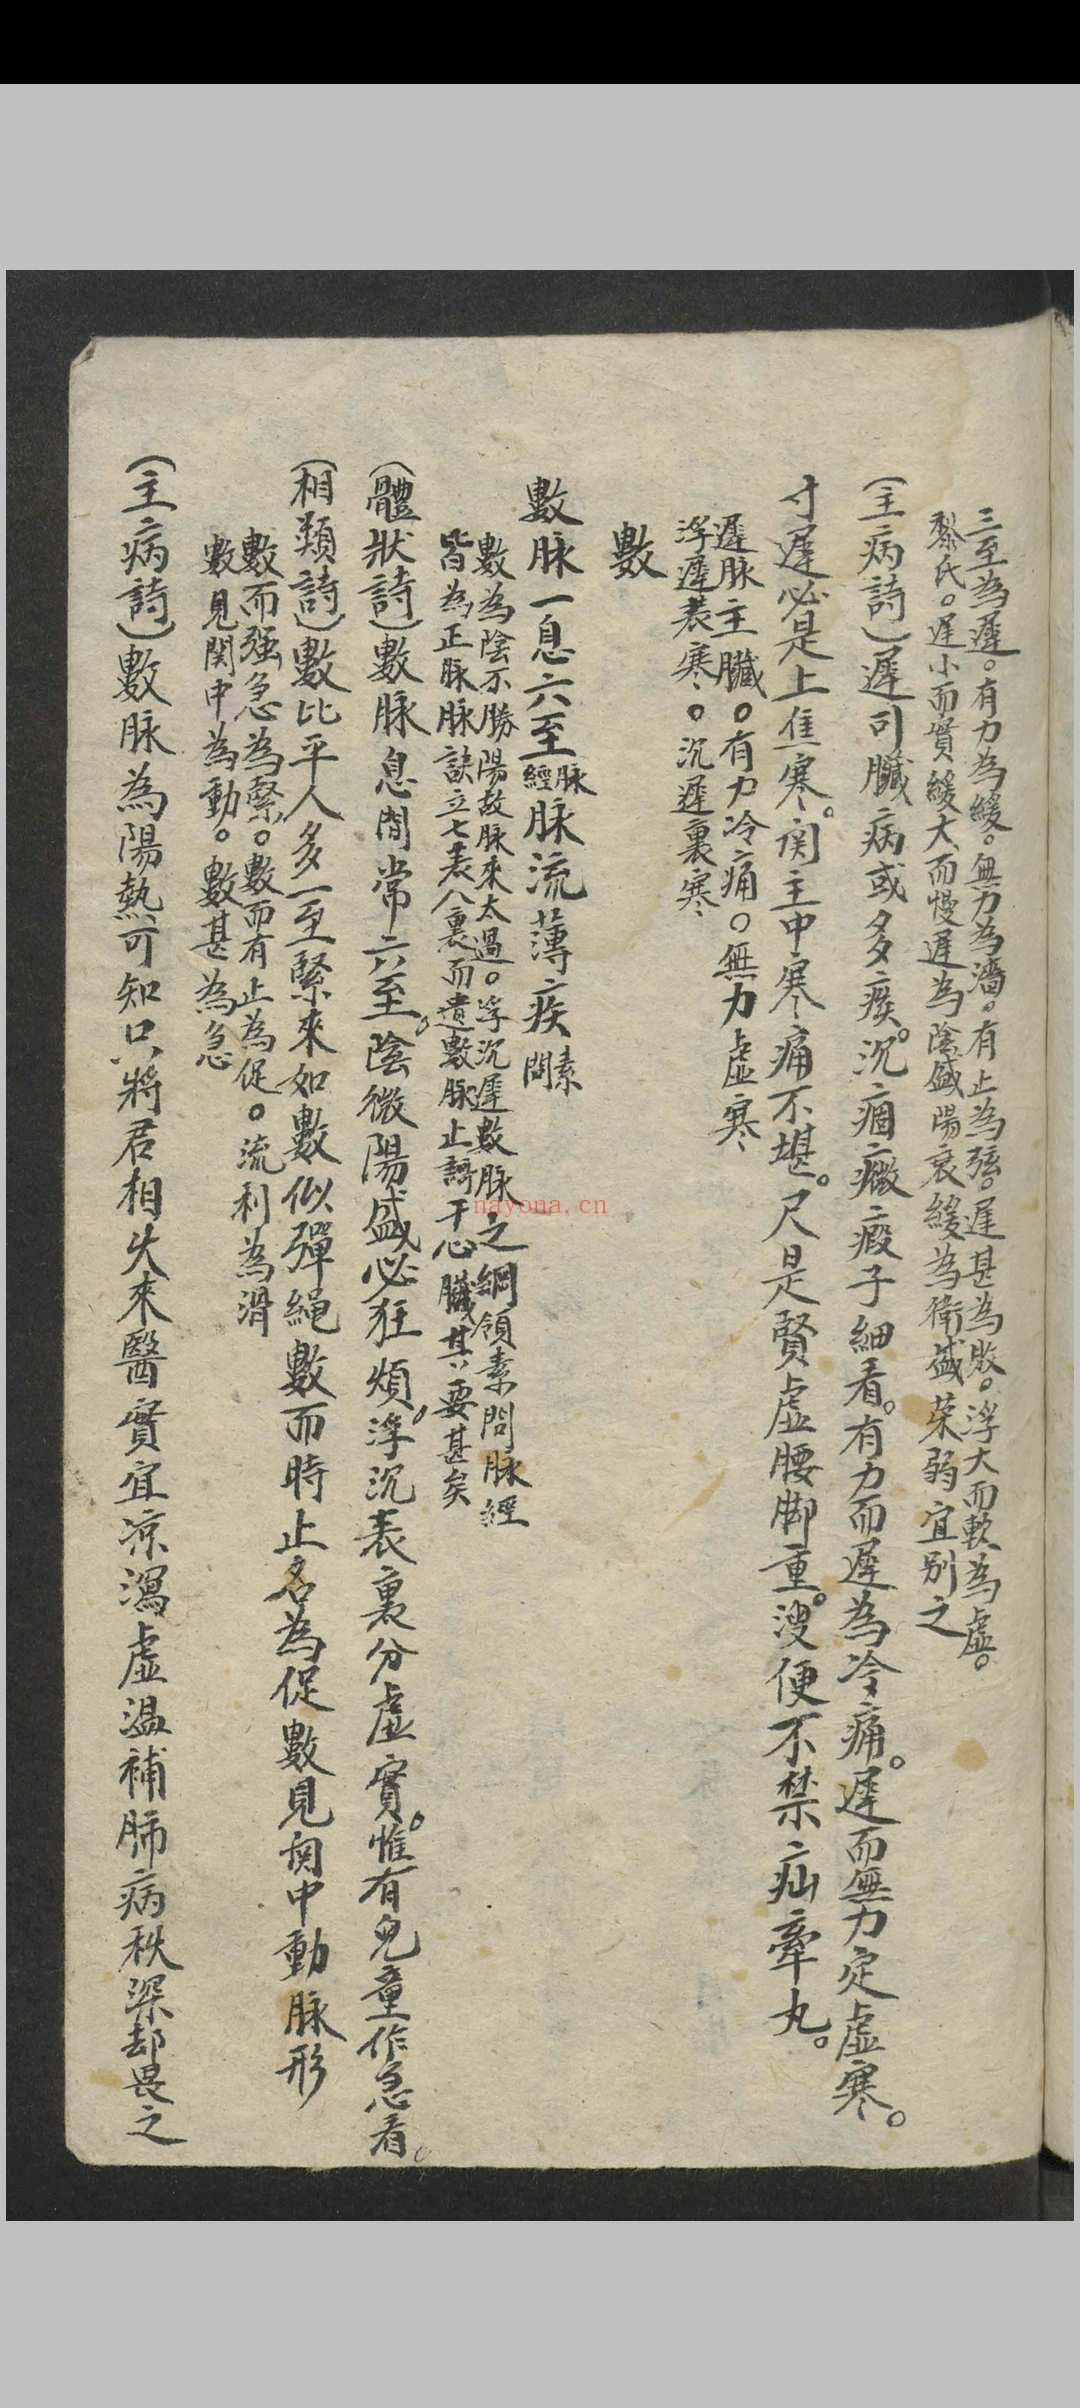 三至為遲。有力為緩。無力為濇。有止為弦。遲甚為敗。浮大而軟為虛。
黎氏。遲小而實緩大而慢遲為陰盛陽衰緩為衛盛荣弱宜別之
(主病詩)遲司臟病或多痰。沉痼癥瘕子細看。有力而遲為冷痛。遲而無力定虛寒。
寸遲必是上焦寒。関主中寒痛不堪。尺是賢虛腰脚重。溲便不禁疝牽丸。
遲脉主臟。有力冷痛。無力虛寒
浮遲表寒。沉遲裏寒
數
數脉一息六至脉經脉流薄疾素問
數為陰不勝陽故脉來太過。浮沉遲數脉之綱領素問脉經
皆為正脉脉訣立七表八裏而遺數脉止謌于心臟其要甚矣
(體狀詩)數脉息間常六至。陰微陽盛必狂煩。浮沉表裏分虛實。惟有兒童作急看。
(相類詩)數比平人多一至緊來如數似彈繩數而時止名為促數見関中動脉形
數而强急為緊。數而有止為促。流利為滑
數見関中為動。數甚為急
(主病詩)數脉為陽熱可知只將君相火來醫實宜凉瀉虛温補肺病秋深却畏之
nayona.cn